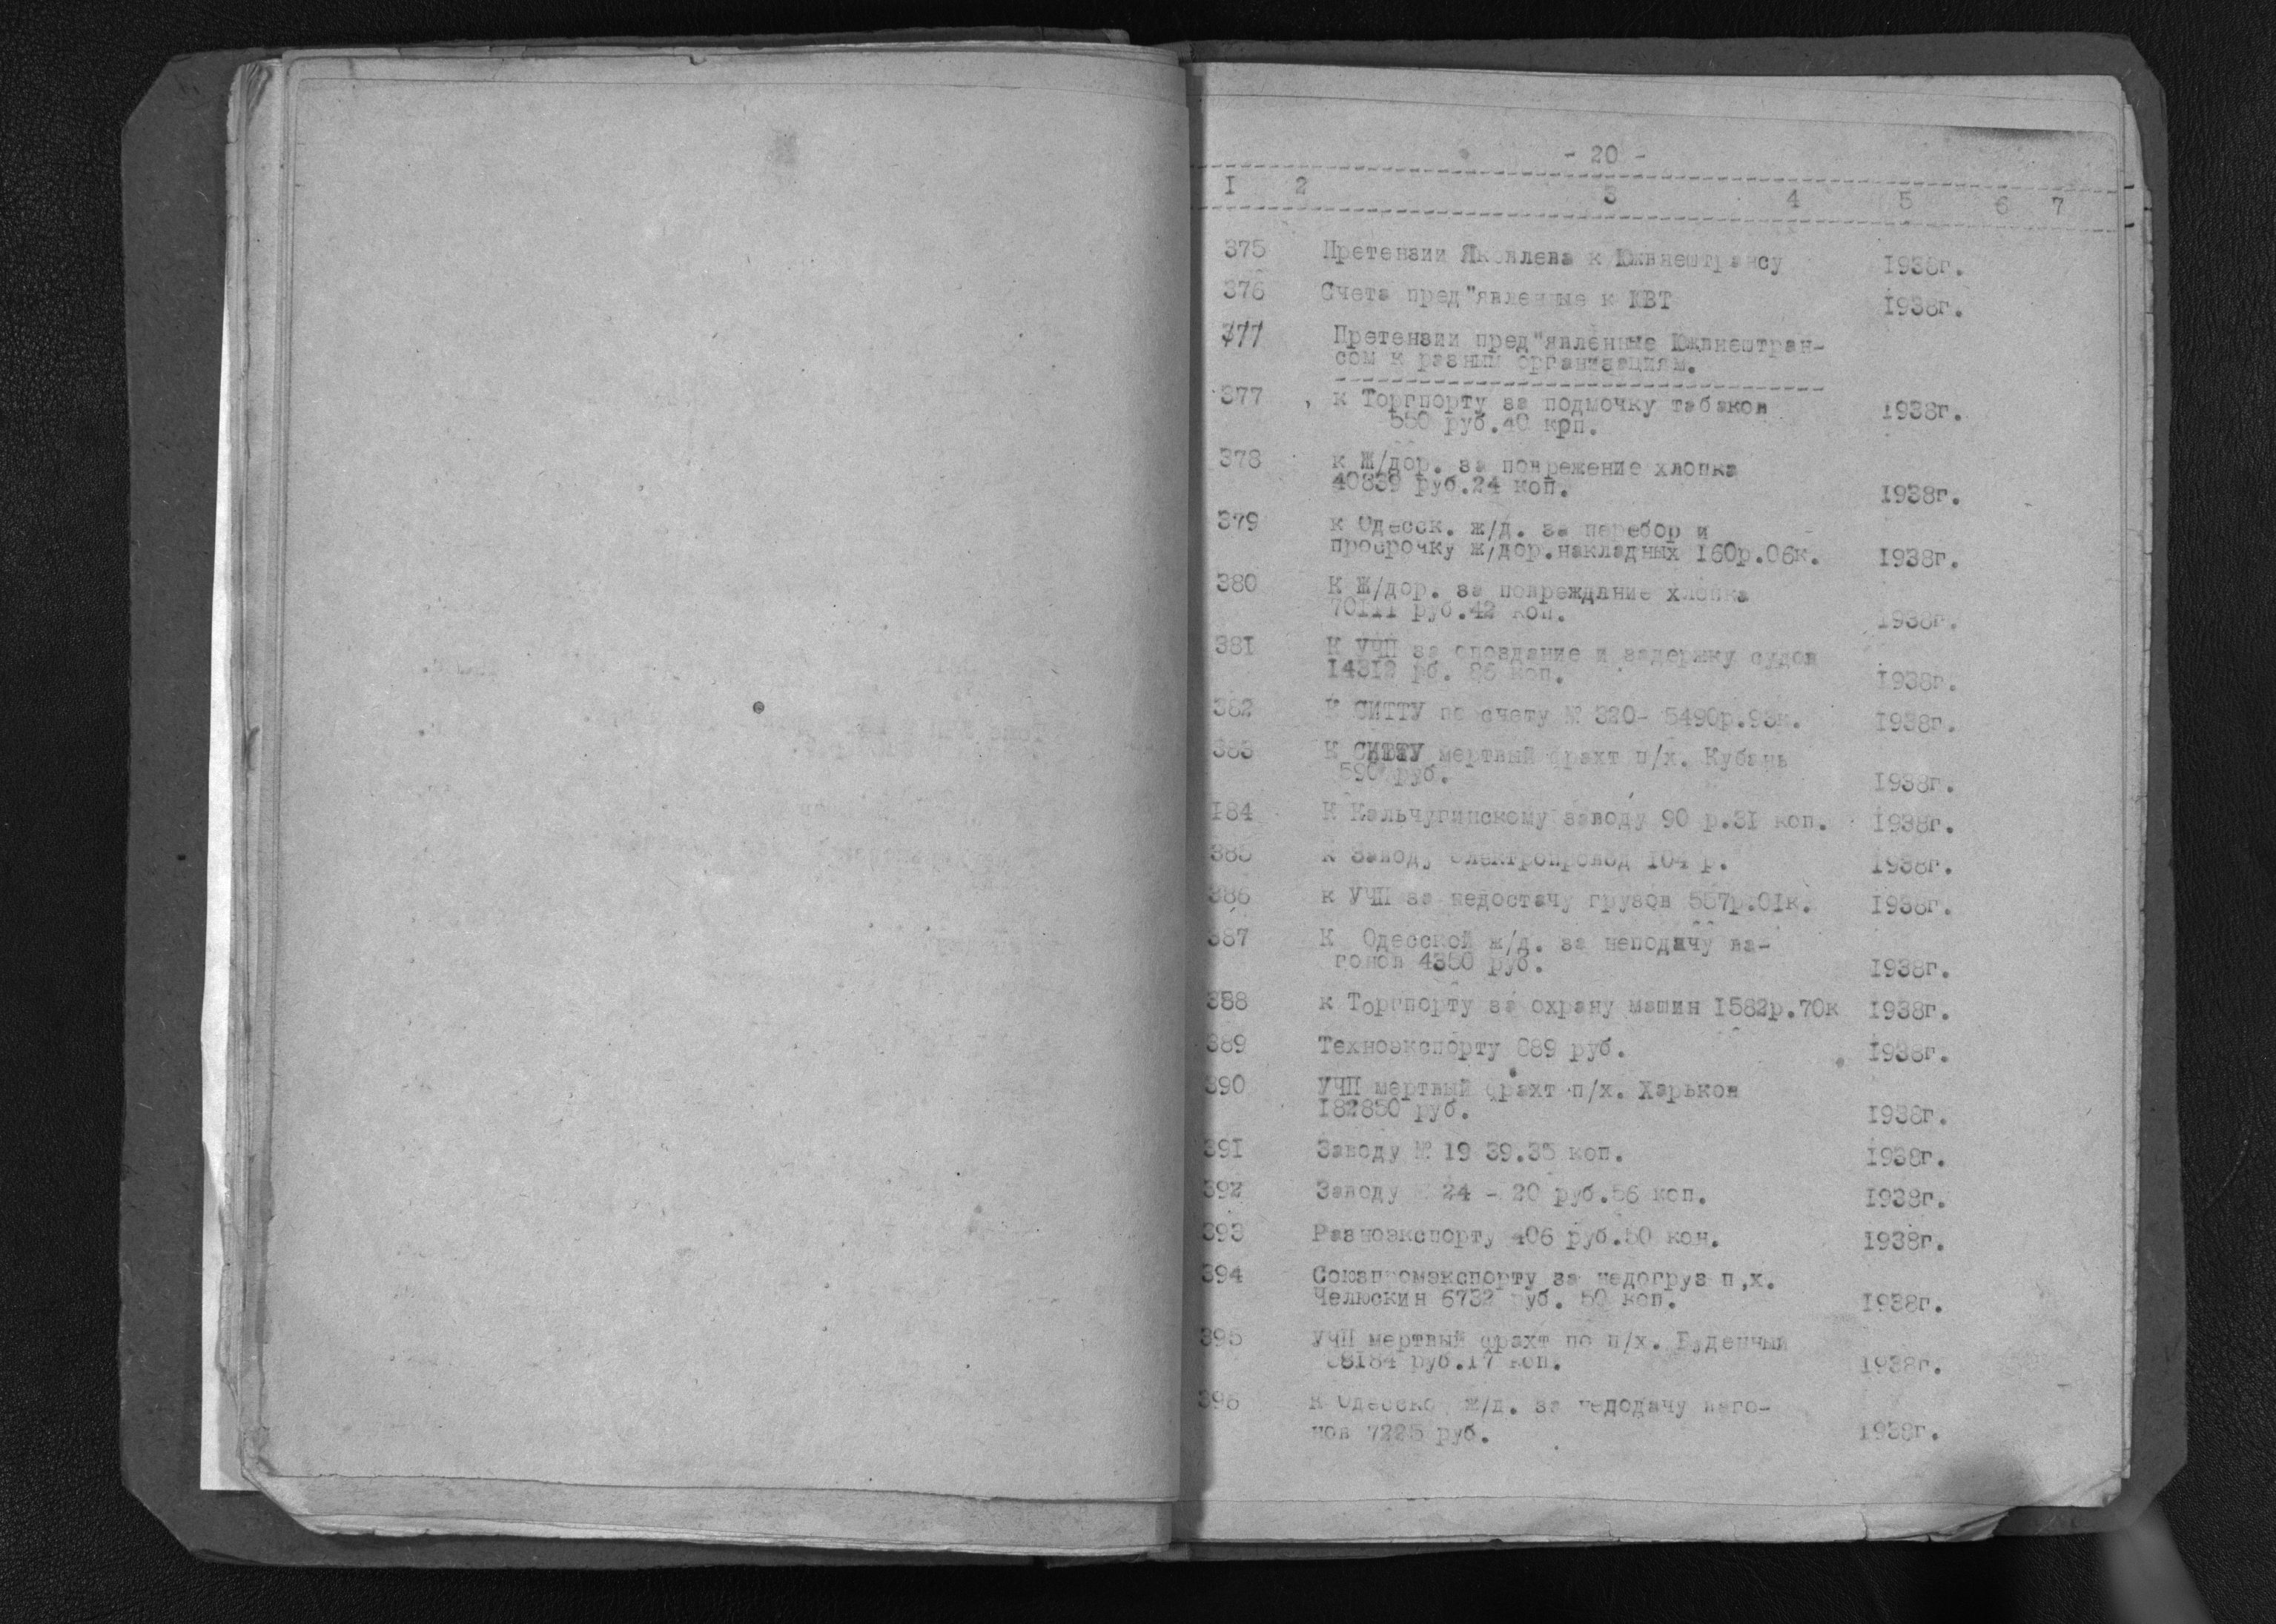 - 20 -
I 2 3 4 5 6 7
375 Претензии Яковлева к Южвнештрансу 1938г.
376 Счета пред"явленные к ЮВТ 1938г.
377 Претензии пред"явленные Южвнештран-
сом к разным организациям.
377 к Торгпорту за подмочку табаков 1938г.
550 руб.40 крп.
378 к Ж/дор. за поврежение хлопка
40839 руб.24 коп. 1938г.
379 к Одесск. ж/д. за перебор и
просрочку ж/дор.накладных 160р.06к. 1938г.
380 К Ж/дор. за повреждание хлопка
70III руб.42 коп. 1938г.
381 К УЧП за опоздание и задержку судов
14312 рб. 86 коп. 1938г.
382 К СИТТУ по счету № 320- 5490р.93к. 1938г.
383 К СИТТУ мертвый фрахт п/х. Кубань
590 руб. 1938г.
184 К Кальчугинскому заводу 90 р.31 коп. 1938г.
385 К Заводу Электропровод 104 р. 1938г.
386 к УЧП за недостачу грузов 557р.01к. 1938г.
387 К Одесской ж/д. за неподачу ва-
гонов 4350 руб. 1938г.
388 к Торгпорту за охрану машин 1582р.70к 1938г.
389 Техноэкспорту 689 руб. 1938г.
390 УЧП мертвый фрахт п/х. Харьков
182850 руб. 1938г.
391 Заводу № 19 39.35 коп. 1938г.
392 Заводу 24 - 20 руб.56 коп. 1938г.
393 Разноэкспорту 406 руб.50 коп. 1938г.
394 Союзпромэкспорту за недогруз п,х.
Челюскин 6732 руб. 50 коп. 1938г.
395 УЧП мертвый фрахт по п/х. Буденный
руб.17 коп. 1938г.
396 к Одесско ж/д. за недодачу ваго-
нов 7225 руб. 1938г.